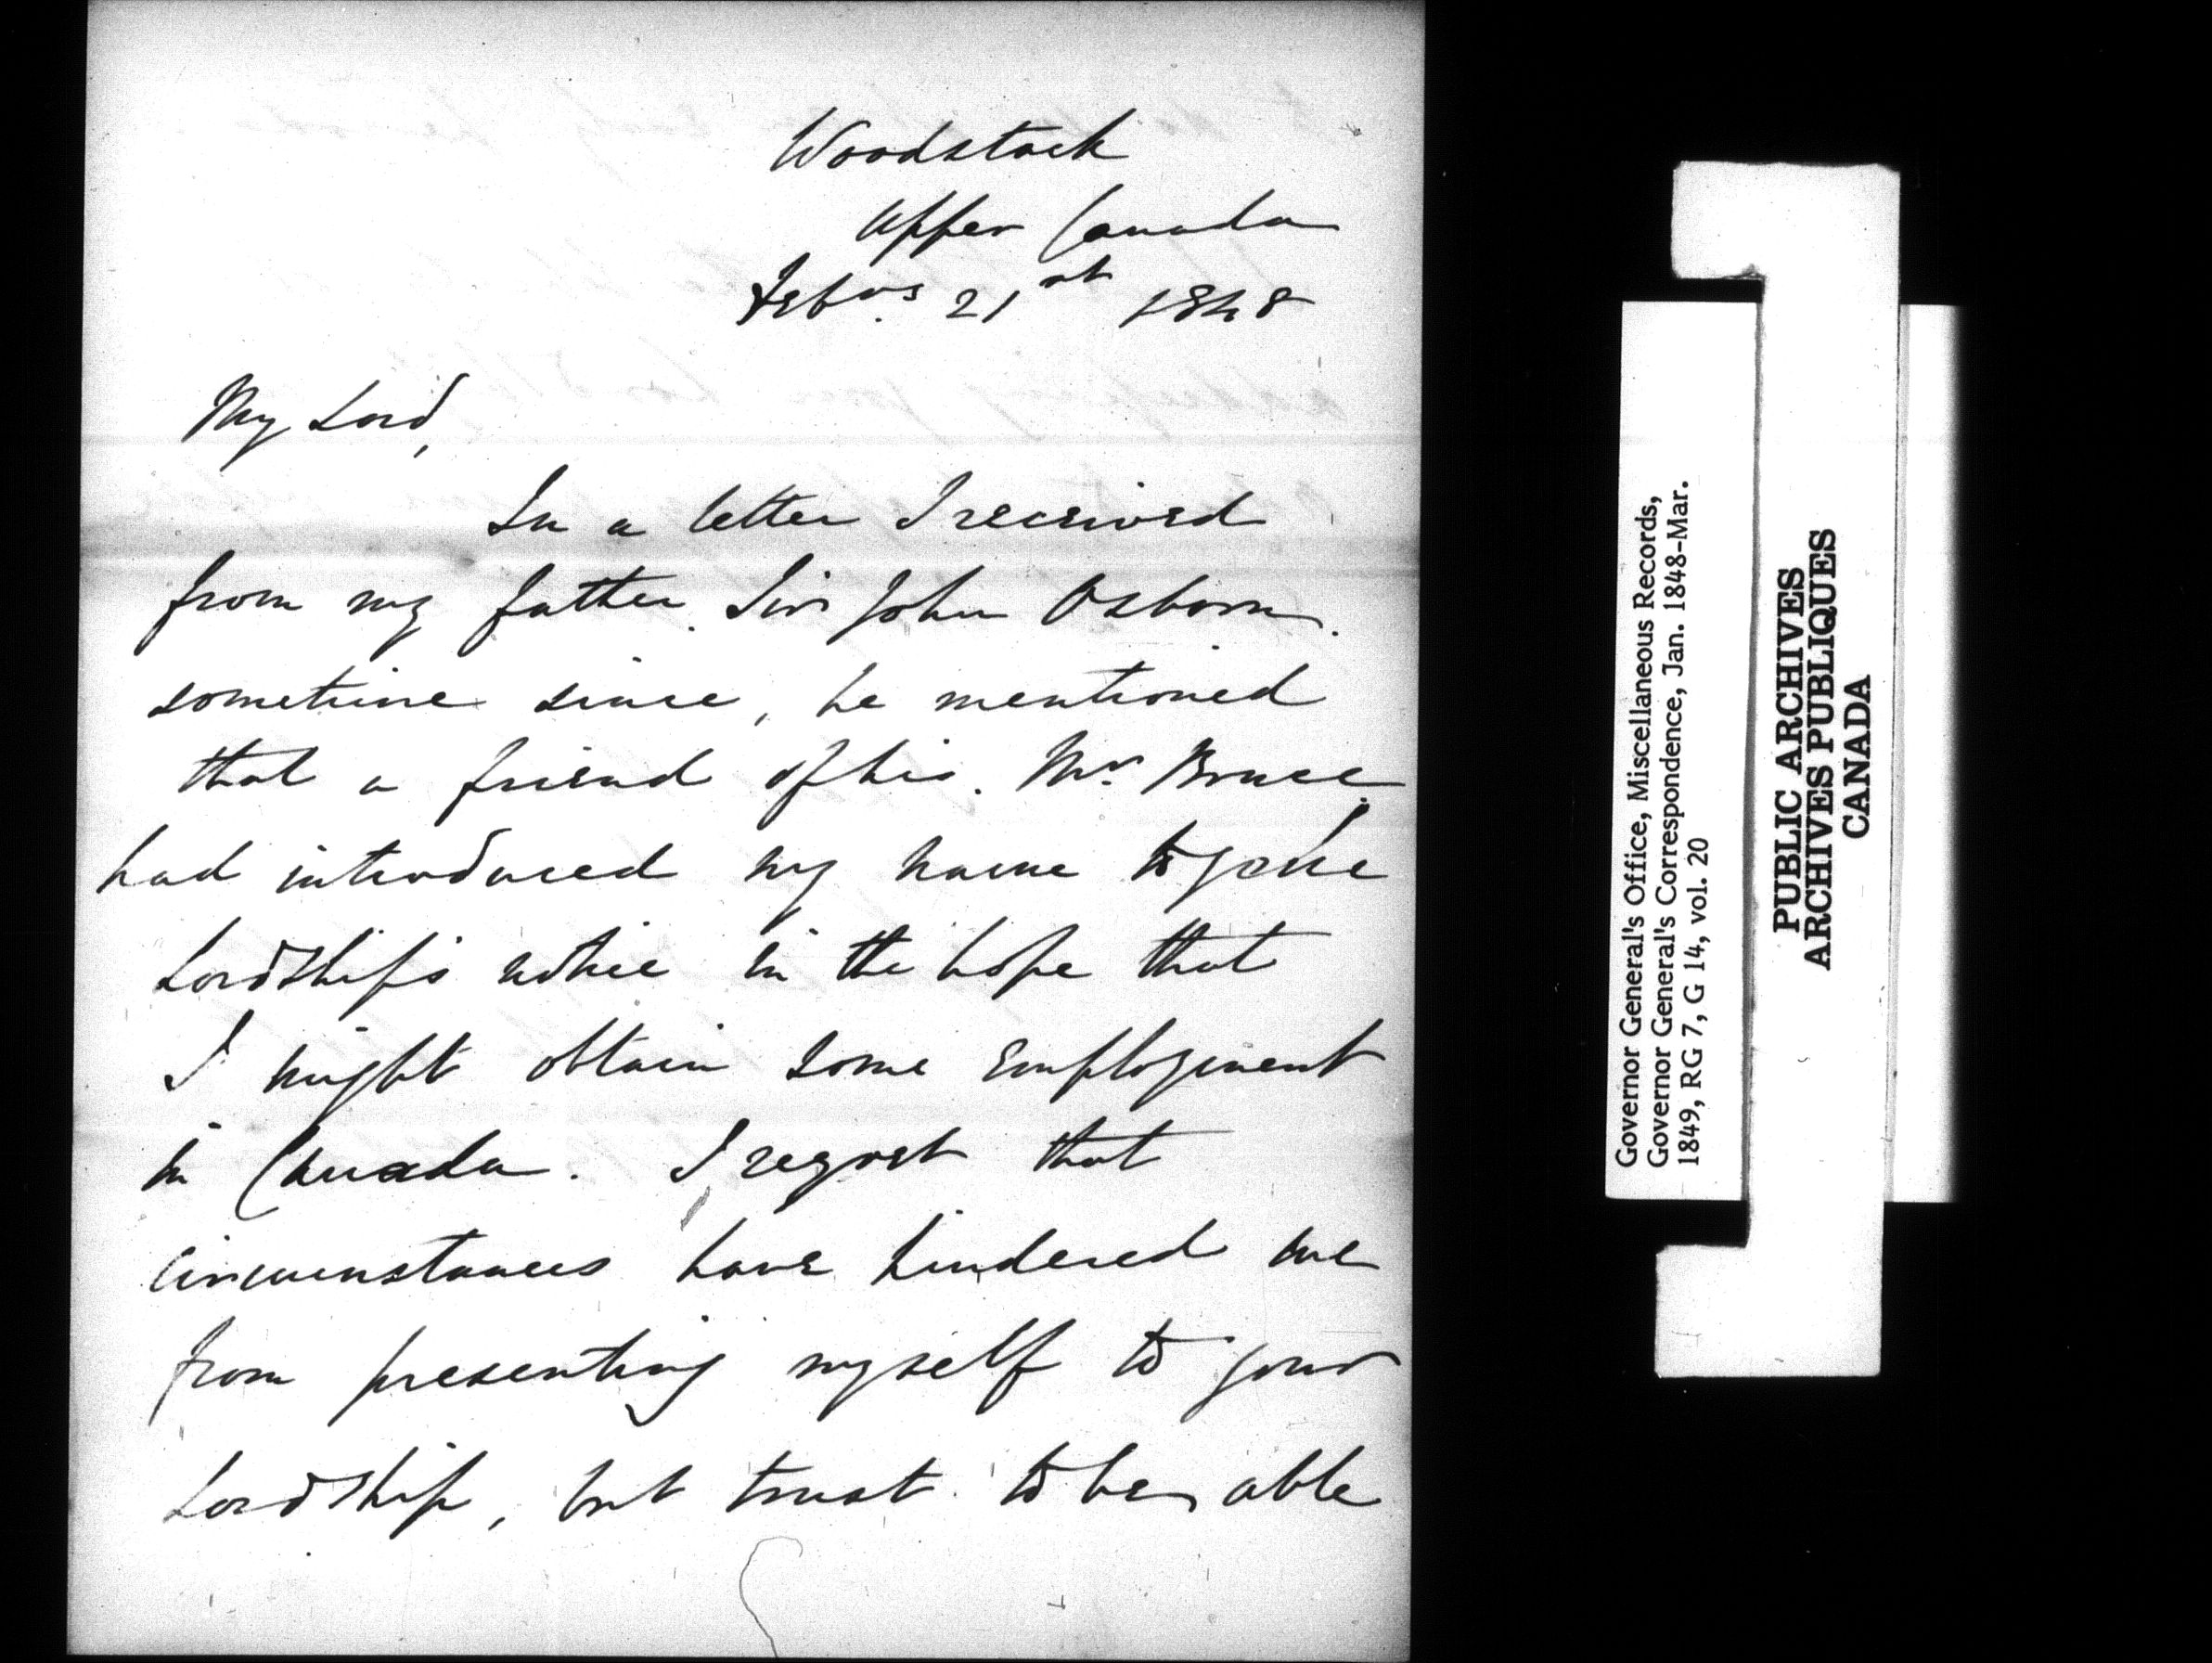 Woodstock
Upper Canada
Feb.ry 21st 1848
My Lord,
In a letter I received
from my father Sir John Osborn.
sometime since, he mentioned
that a friend of his. Mr. Bruce
had introduced my name to your
Lordship's notice in the hope that
I might obtain some employment
in Canada. I regret that
circumstances have hindered me
from presenting myself to your
Lordship, but trust to be able
Governor General's Office, Miscellaneous Records,
Governor General's Correspondence, Jan. 1848-Mar.
1849, RG 7, G 14, vol. 20
PUBLIC ARCHIVES
ARCHIVES PUBLIQUES
CANADA